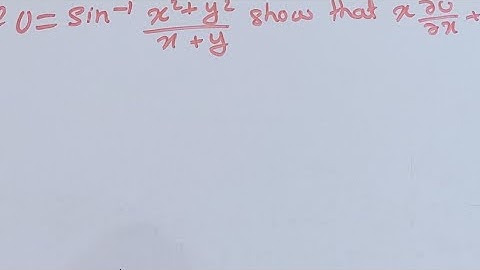 U = sin⁻¹ (x² + y²)/(x + y) show that x ∂U/∂x +